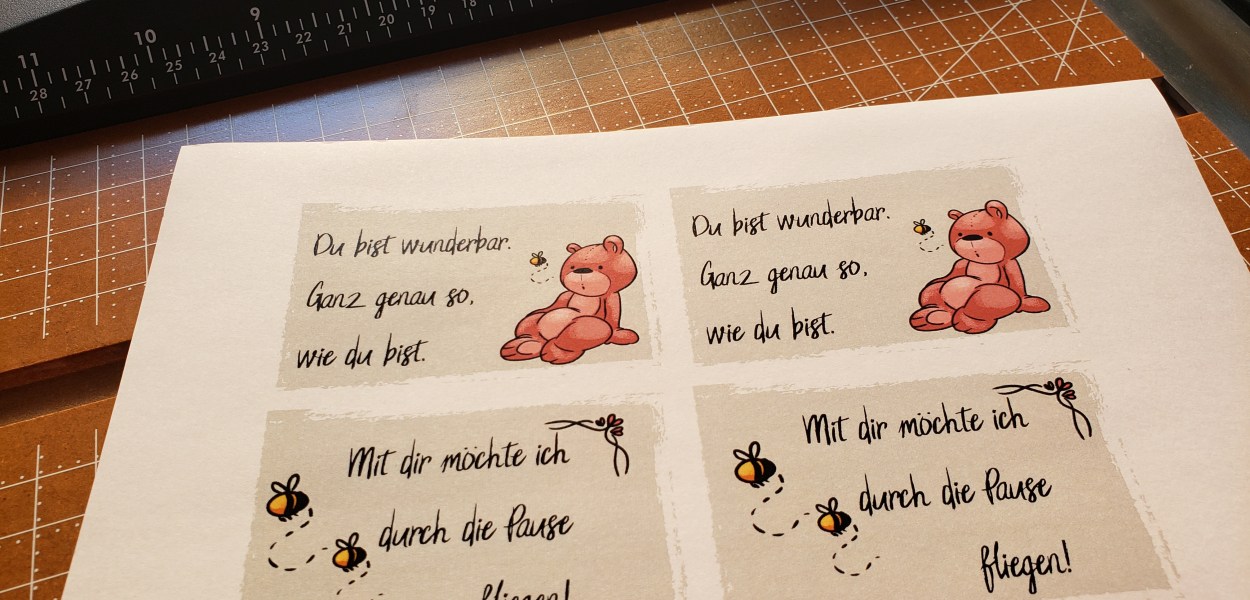 11 10 9
28 27 26 25 24 23 22 21 20 19 18
Du bist wunderbar.
Ganz genau so,
wie du bist.
Du bist wunderbar.
Ganz genau so,
wie du bist.
Mit dir möchte ich
durch die Pause
fliegen!
Mit dir möchte ich
durch die Pause
fliegen!